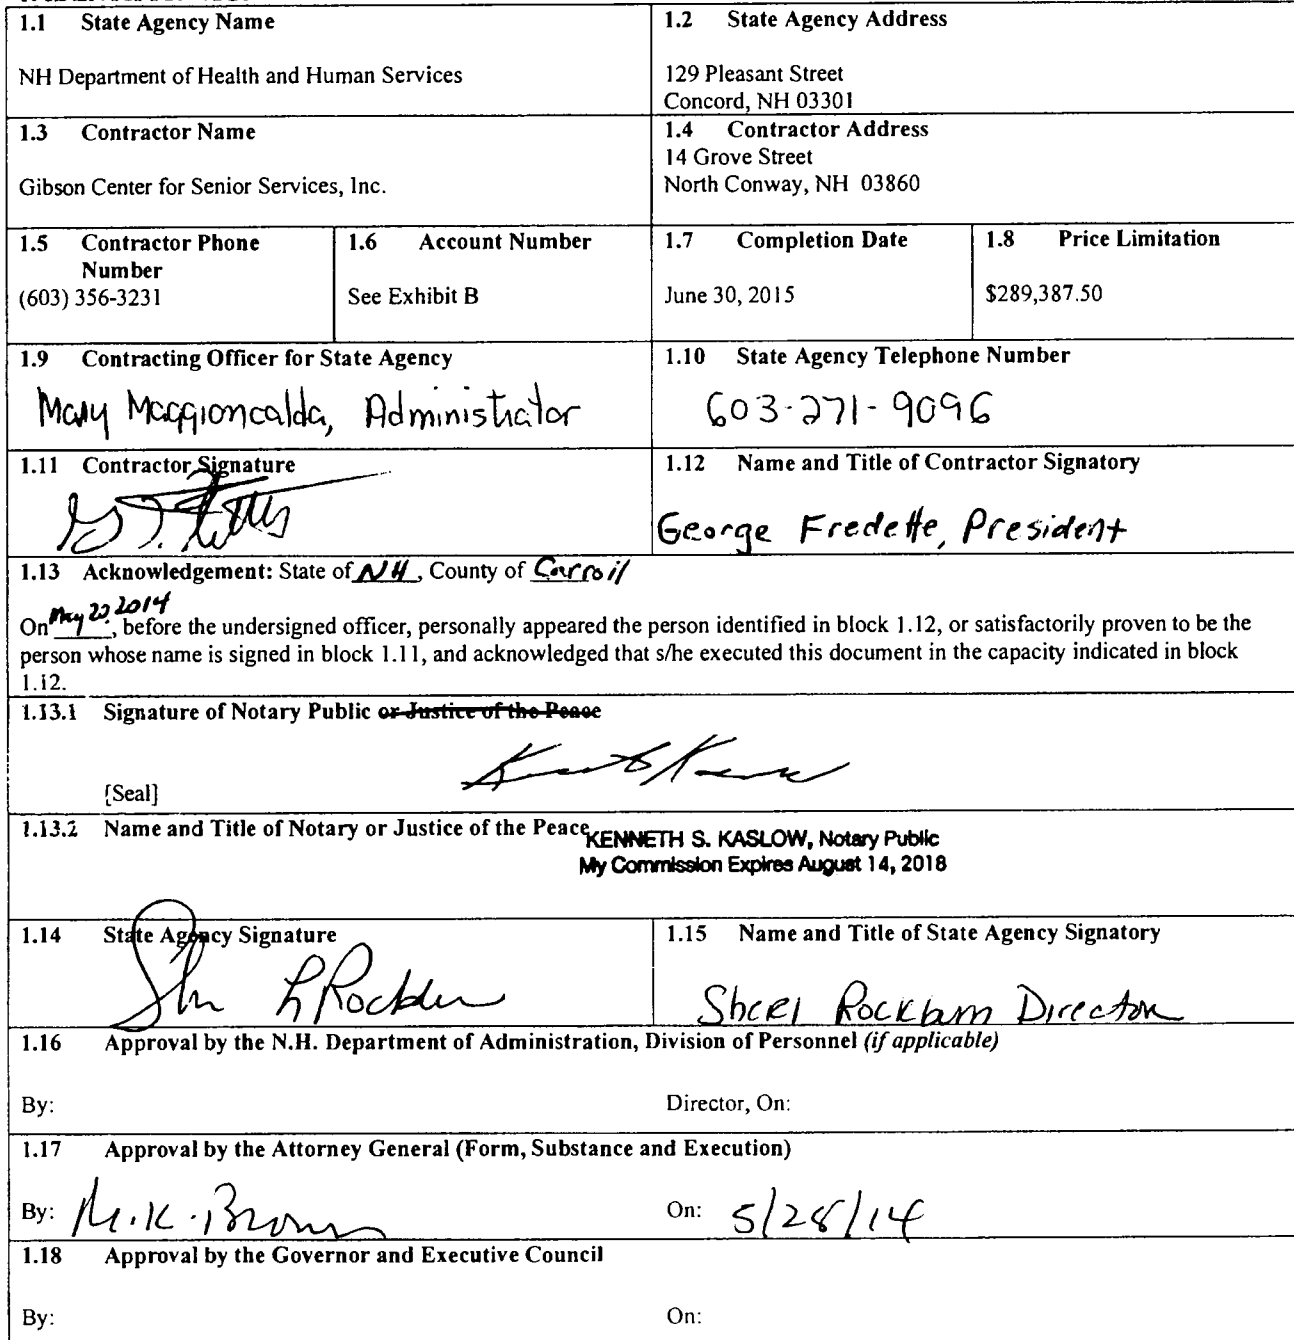 1.1 State Agency Name
NH Department of Health and Human Services
1.2 State Agency Address
129 Pleasant Street
Concord, NH 03301
1.3 Contractor Name
Gibson Center for Senior Services, Inc.
1.4 Contractor Address
14 Grove Street
North Conway, NH 03860
1.5 Contractor Phone
Number
(603) 356-3231
1.6 Account Number
See Exhibit B
1.7 Completion Date
June 30, 2015
1.8 Price Limitation
$289,387.50
1.9 Contracting Officer for State Agency
Mary Maggioncalda, Administrator
1.10 State Agency Telephone Number
603-271-9096
1.11 Contractor Signature
1.12 Name and Title of Contractor Signatory
George Fredette, President
1.13 Acknowledgement: State of NH, County of Carroll
On May 22 2014, before the undersigned officer, personally appeared the person identified in block 1.12, or satisfactorily proven to be the
person whose name is signed in block 1.11, and acknowledged that s/he executed this document in the capacity indicated in block
1.12.
1.13.1 Signature of Notary Public or Justice of the Peace
[Seal]
1.13.2 Name and Title of Notary or Justice of the Peace
KENNETH S. KASLOW, Notary Public
My Commission Expires August 14, 2018
1.14 State Agency Signature
1.15 Name and Title of State Agency Signatory
Sheri Rockburn Director
1.16 Approval by the N.H. Department of Administration, Division of Personnel (if applicable)
By:
Director, On:
1.17 Approval by the Attorney General (Form, Substance and Execution)
By: M.K. Brown
On: 5/28/14
1.18 Approval by the Governor and Executive Council
By:
On: